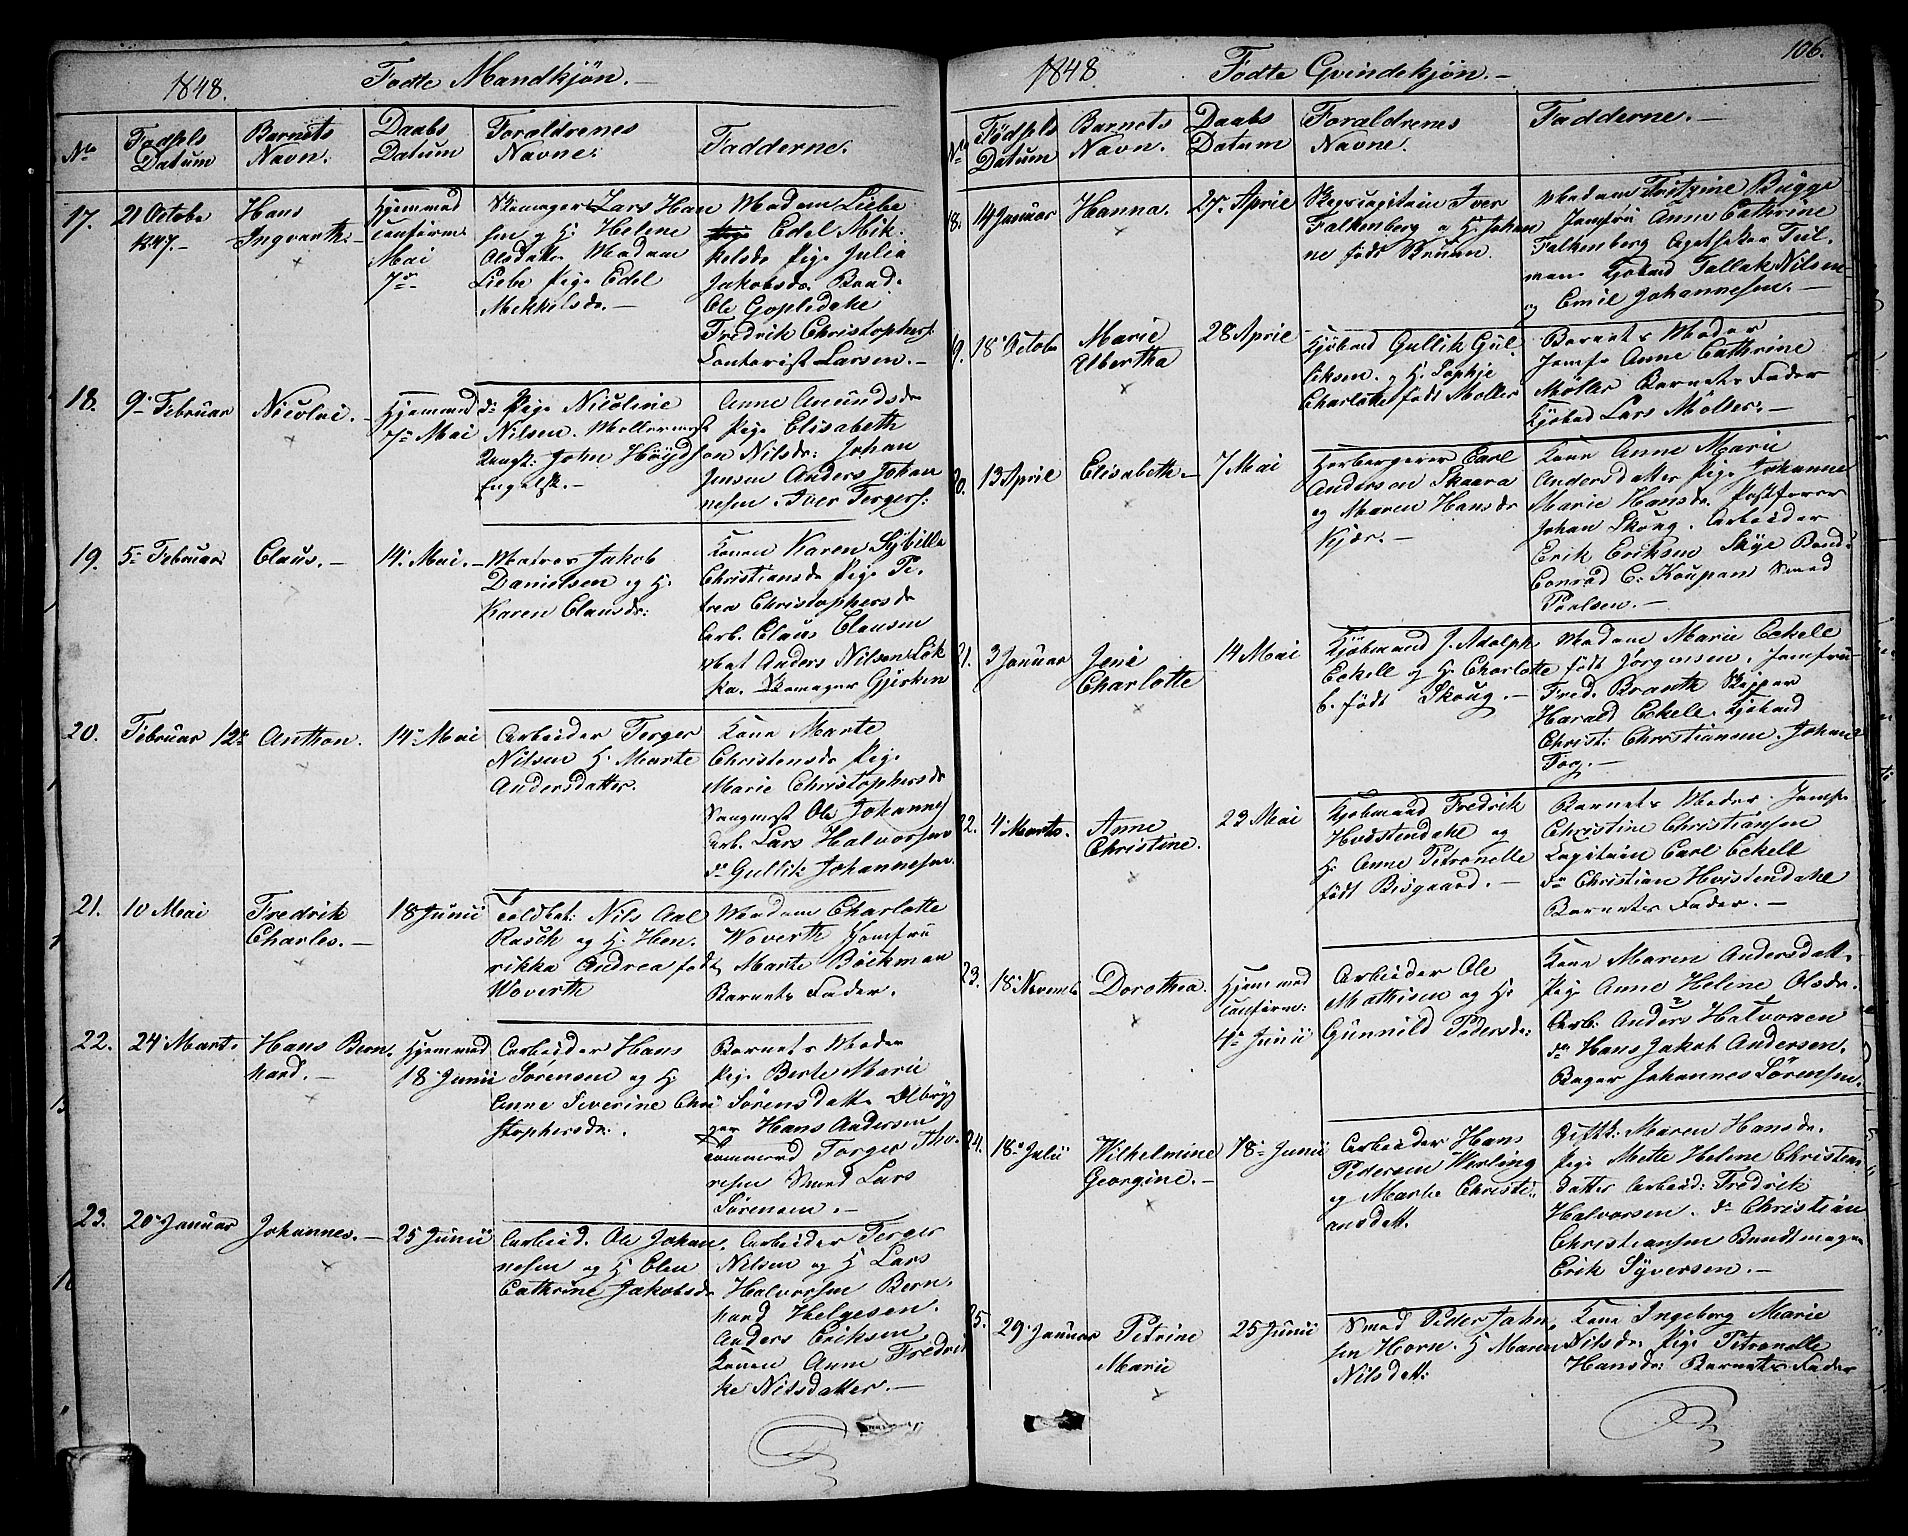 1848. Fødte Mandkjøn.
No Fødsels Datum Barnets Navn. Daabs Datum Forældrenes Navne: Fadderne.
17. 21 Octobr 1847. Hans Ingvarth Hjemmed confirm. Mai 7de
Skomager Lars Han
sen og H. Helene
Olsdatt. Madam
Liebe Pige Edel
Mekkelsdr.
Madam Liebe
Edel Mik-
kelsdr Pige Julia
Jakobsdr. Baad.
Ole Gopledahl
Fredrik Christophers.
Contorist Larsen.
18. 9 Februar Nicolai. Hjemmed 7de Mai
Pige Nicoline
Nilsen. Møllermest
John Høyds
Engelsk.
Anne Amundsdr
Pige Elisabeth
Nilsdr: Johan
Jensen Anders Johan
nesen. Iver Tergers:
19. 5 Februar Claus. 14 Mai.
Matros Jakob
Danielsen og H.
Karen Clausdr:
Konen Karen Sybille
Christiansdr Pige Pe-
trea Christophersdr
Arb. Claus Clausen
Mat Anders Nilsen Løk
ka. Skomager Gjerken
20. Februar 12te Anthon. 14 Mai
Arbeider Terger
Nilsen H. Marte
Andersdatter.
Kone Marte
Christensdr Pige
Marie Christophersdr
Ole Johannes
Arb. Lars Halvorsen
do Gullik Johannesen.
21. 10 Mai Fredrik Charles. 18 Junii
Toldbet: Nils Aal
Rasch og H. Hen-
rikka Andrea født
Woverth
Madam Charlotte
Woverth Jomfru
Marte Bøckman
Barnets Fader.
22. 24 Marts Hans Bern- hard. Hjemmed 18 Junii
Arbeider Hans
Sørensen og H.
Anne Severine Chri
stophersdr:
Barnets Moder
Pige Berte Marie
Sørensdatt. Ølbryg
ger Hans Andersen
Torger Tho-
resen Smed Lars
Sørensen.
23. 20 Januar Johannes. 25 Junii
Arbeid. Ole Johan-
nesen og H. Elen
Cathrine Jakobsdr
Arbeider Terger
Nilsen og H Lars
Halvorsen Bern-
hard Helgesen.
Anders Eriksen
Konen Anne Fredrik
ke Nilsdatter.
1848 Fødte Qvindekjøn. 106.
No Fødsels Datum Barnets Navn. Daabs Datum Forældrenes Navne. Fadderne.
18. 14 Januar Hanna. 27. April
Skibscapitain Iver
Falkenberg og H. Johan
ne født Bruun.
Madam Fritzine Bugge
Jomfru Anne Cathrine
Falkenberg Apotheker Tul-
man Kjøbmd Tallak Nilsen
og Emil Johannesen.
19. 18 Octobr Marie Albertha 28 April
Kjøbmd Gullik Gul-
liksen. og H. Sophje
Charlotte født Møller
Barnets Moder
Jomfr Anne Cathrine
Møller Barnets Fader
Kjøbmd Lars Møller.
20. 13 April Elisabeth. 7 Mai
Herbergerer Carl
Anderson Skaara
og Maren Hansdr
Kjær.
Kone Anne Marie
Andersdatter Pige Johanne
Marie Hansdr Postfører
Johan Skoug. Arbeider
Erik Eriksen Skye Baad
Conrad C. Koupans Smed
Poelsen.
21. 3 Januar Jeni Charlotte 14 Mai
Kjøbmand J. Adolph
Eckell og H. Charlotte
B. født Skoug.
Madam Marie Eckell
født Jørgensen. Jomfru
Fred. Branth Skipper
Harald Eckell. Kjøbmd
Christ: Christiansen. Johan
Fog.
22. 4 Marts. Anne Christine. 23 Mai
Kjøbmand Fredrik
Hvistendahl og
H. Anne Petronelle
født Bisgaard.
Barnets Moder. Jomfr.
Christine Christiansen
Capitain Carl Eckell
do Christian Hvistendahl
Barnets Fader.
23. 18 Novemb Dorothea. Hjemmed confirm: 4de Junii
Arbeider Ole
Mathisen og H.
Gunnild Pedersdr:
Kone Maren Andersdatt.
Pige Anne Helene Olsdr.
Arb. Anders Halvorsen
do Hans Jakob Andersen.
Bager Johannes Sørensen.
24. 18 Julii Wilhelmine Georgine. 18 Junii
Arbeider Hans
Pedersen Werling
og Marte Christi-
ansdatt.
Gift: Maren Hansdr.
Pige Mette Helene Christens
datter Arbeid: Fredrik
Halvorsen. do Christian
Christiansen Bundtmager
Erik Syversen.
25. 29 Januar Petrine Marie 25 Junii
Smed Peder John
sen Horn. H Maren
Nilsdatt:
Kone Ingeborg Marie
Nilsdr. Pige Petronelle
Hansdr: Barnets Fader